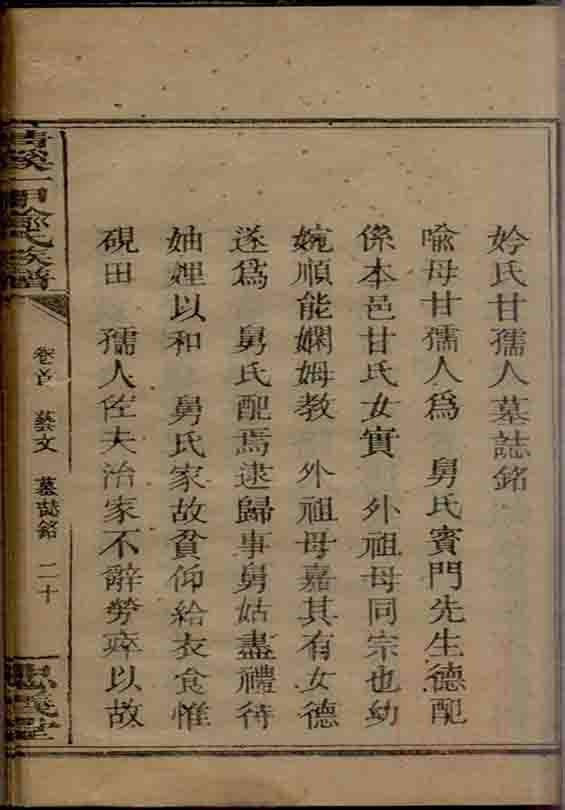 妗氏甘孺人墓誌銘
喻母甘孺人爲 舅氏賓門先生德配
係本邑甘氏女實 外祖母同宗也幼
婉順能嫻姆教 外祖母嘉其有女德
遂爲 舅氏配焉逮歸事舅姑盡禮待
妯娌以和 舅氏家故貧仰給衣食惟
硯田 孺人佐夫治家不辭勞瘁以故
清溪一甲喻氏族譜
卷首 藝文 墓誌銘 二十
忠義堂